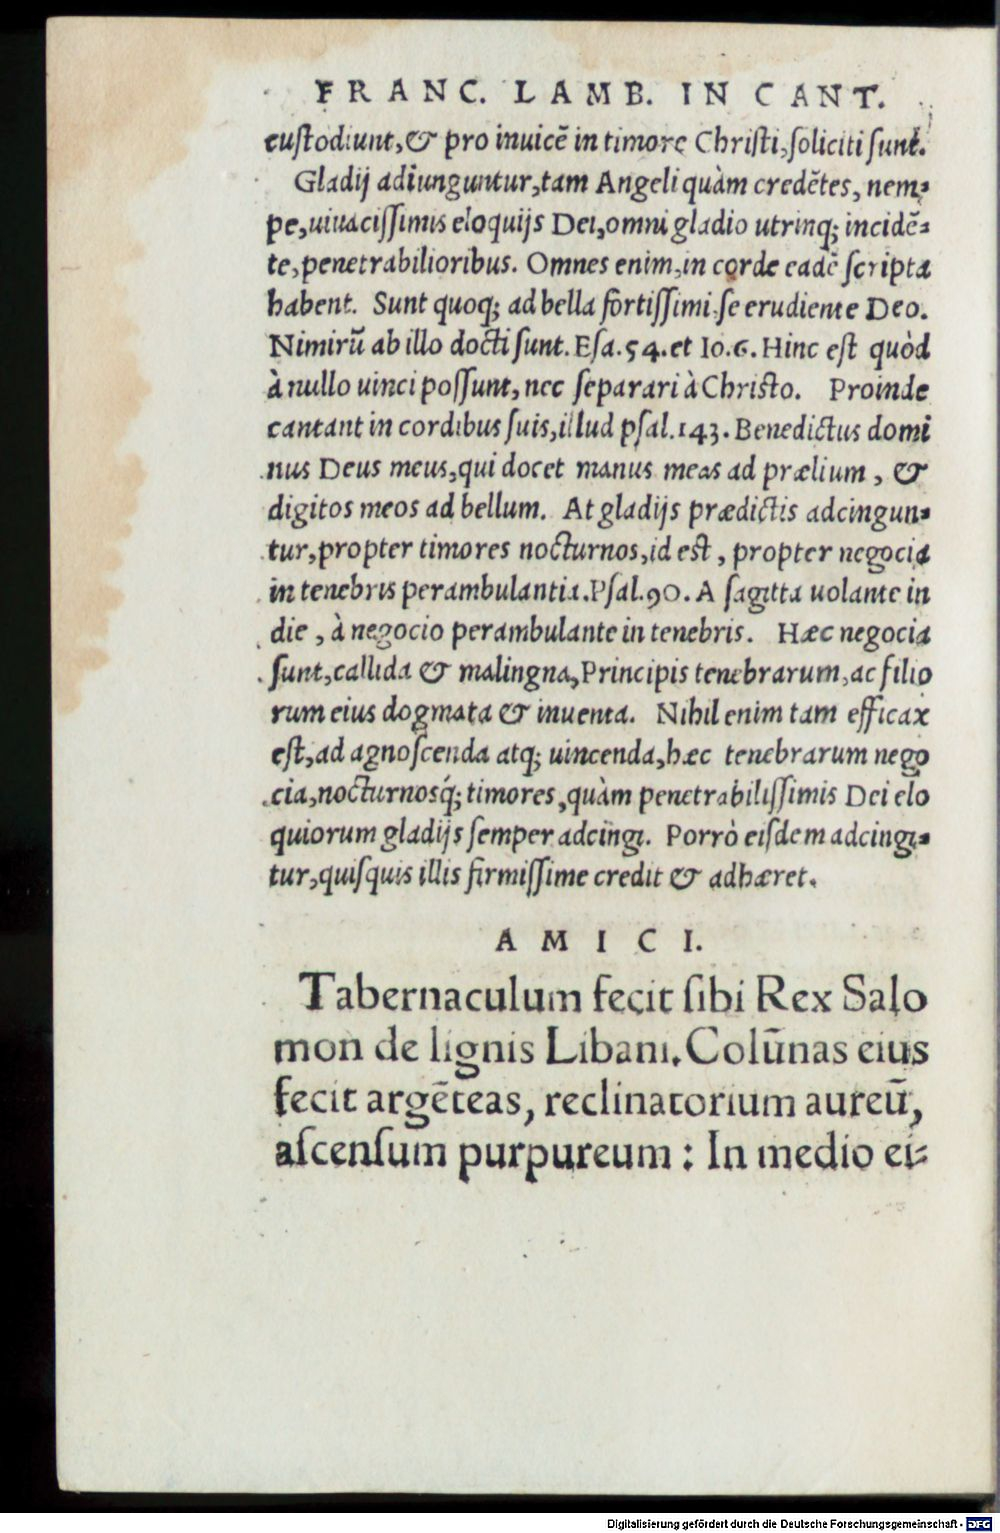 FRANC. LAMB. IN CANT.
custodiunt, & pro inuicē in timore Christi, soliciti sunt.
Gladij adiunguntur, tam Angeli quàm credētes, nem-
pe, uiuacissimis eloquijs Dei, omni gladio utrinq; incidē-
te, penetrabilioribus. Omnes enim, in corde eadē scripta
habent. Sunt quoq; ad bella fortissimi, se erudiente Deo.
Nimirū ab illo docti sunt. Esa. 54. et Io. 6. Hinc est quòd
à nullo uinci possunt, nec separari à Christo. Proinde
cantant in cordibus suis, illud psal. 143. Benedictus domi
nus Deus meus, qui docet manus meas ad prælium, &
digitos meos ad bellum. At gladijs prædictis adcingun-
tur, propter timores nocturnos, id est, propter negocia
in tenebris perambulantia. Psal. 90. A sagitta uolante in
die, à negocio perambulante in tenebris. Hæc negocia
sunt, callida & malingna, Principis tenebrarum, ac filio
rum eius dogmata & inuenta. Nihil enim tam efficax
est, ad agnoscenda atq; uincenda, hæc tenebrarum nego
cia, nocturnosq́; timores, quàm penetrabilissimis Dei elo
quiorum gladijs semper adcingi. Porrò eisdem adcingi-
tur, quisquis illis firmissime credit & adhæret.
AMICI.
Tabernaculum fecit sibi Rex Salo
mon de lignis Libani. Colūnas eius
fecit argēteas, reclinatorium aureū,
ascensum purpureum : In medio ei-
Digitalisierung gefördert durch die Deutsche Forschungsgemeinschaft - DFG